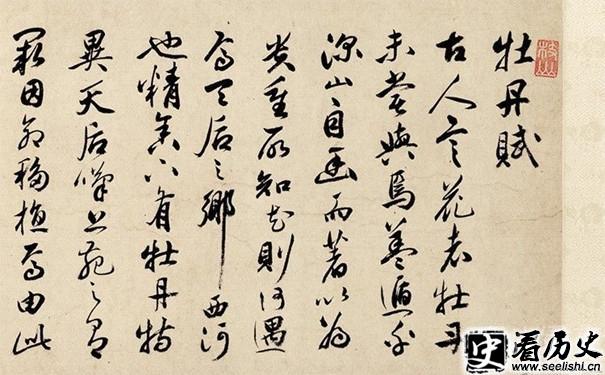 牡丹賦
古人言花者牡丹
未嘗與焉蓋遁乎
深山自幽而著以為
貴重所知花則何遇
焉天后之鄉西河
也精舍下有牡丹特
異天后嘆上苑之有
闕因命移植焉由此
史 看历史
www.seelishi.cn